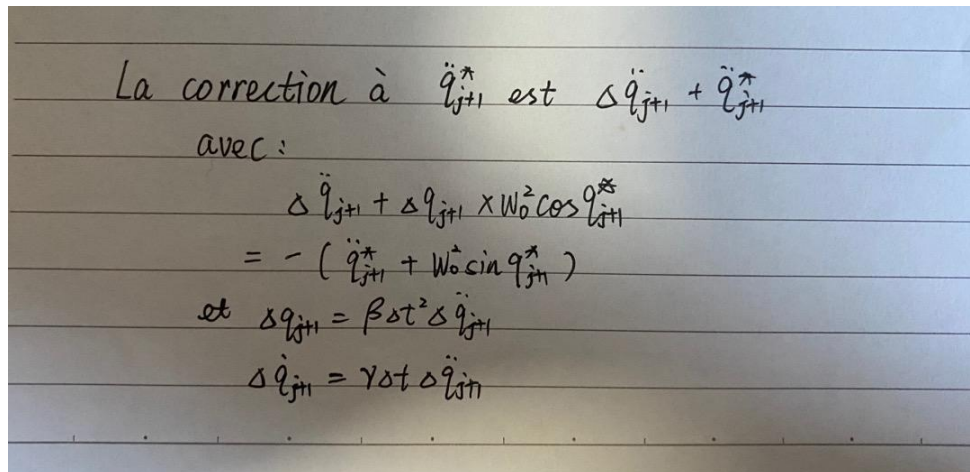 La correction à q̈*ⱼ₊₁ est Δq̈ⱼ₊₁ + q̈*ⱼ₊₁
avec :
Δq̈ⱼ₊₁ + Δqⱼ₊₁ × W₀² cos q*ⱼ₊₁
= - ( q̈*ⱼ₊₁ + W₀² sin q*ⱼ₊₁ )
et Δqⱼ₊₁ = βΔt² Δq̈ⱼ₊₁
Δq̇ⱼ₊₁ = γΔt Δq̈ⱼ₊₁